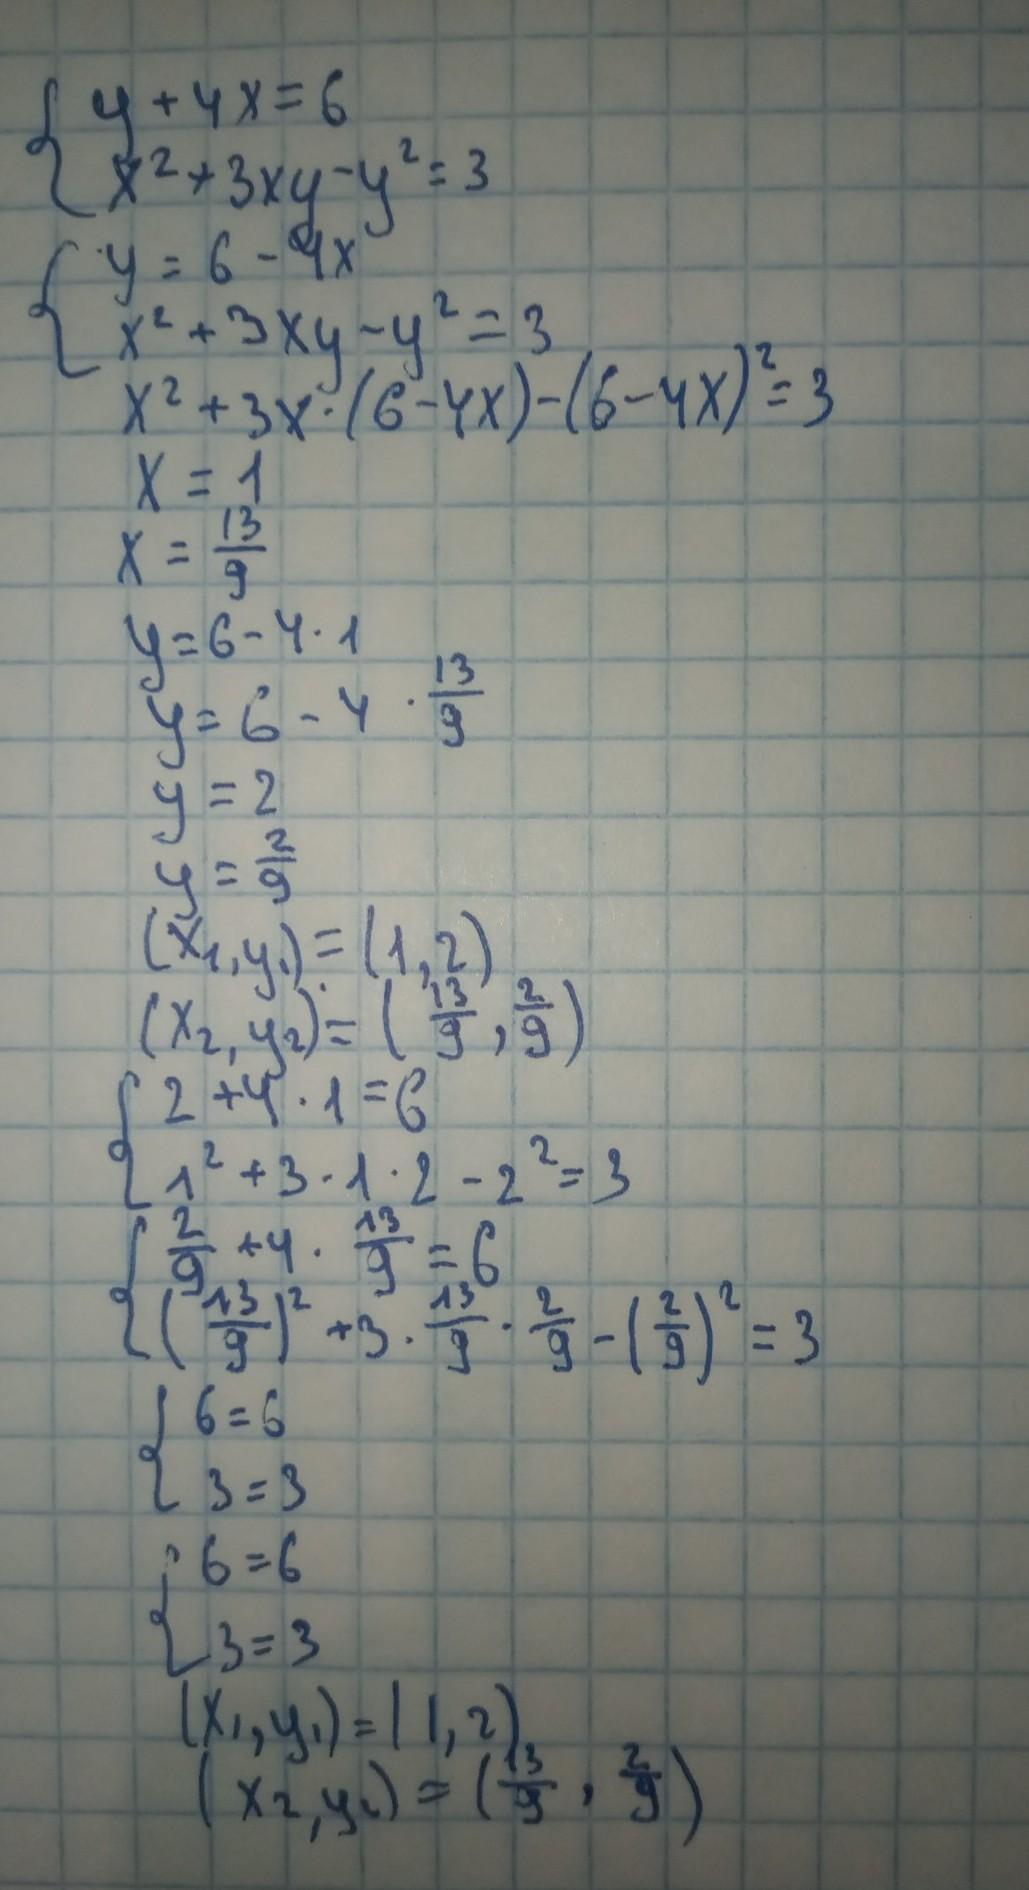 { y + 4x = 6
x² + 3xy - y² = 3
{ y = 6 - 4x
x² + 3xy - y² = 3
x² + 3x · (6 - 4x) - (6 - 4x)² = 3
x = 1
x = 13/9
y = 6 - 4 · 1
y = 6 - 4 · 13/9
y = 2
y = 2/9
(x₁, y₁) = (1, 2)
(x₂, y₂) = (13/9, 2/9)
{ 2 + 4 · 1 = 6
1² + 3 · 1 · 2 - 2² = 3
{ 2/9 + 4 · 13/9 = 6
(13/9)² + 3 · 13/9 · 2/9 - (2/9)² = 3
{ 6 = 6
3 = 3
{ 6 = 6
3 = 3
(x₁, y₁) = (1, 2)
(x₂, y₂) = (13/9, 2/9)